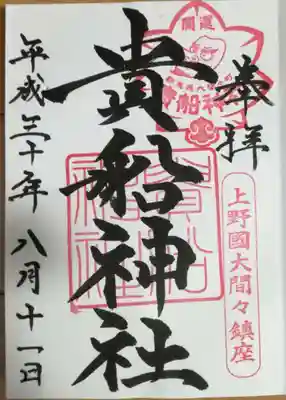 奉拝
開運
貴船神社
上野國大間々鎮座
貴船神社
平成三十年八月十一日